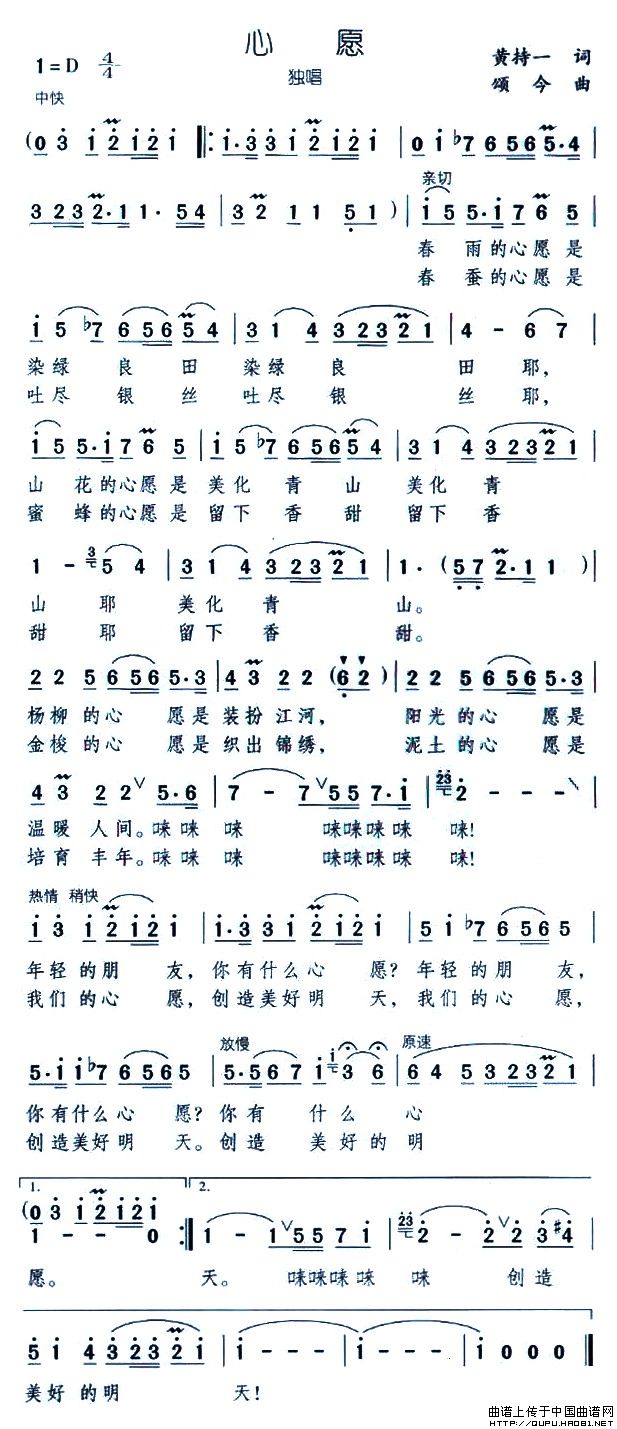 心愿
1=D 4/4
独唱
黄持一 词
颂今 曲
中快
(0 3 1 2 1 2 1 1 ‖: 1·3 3 1 2 1 2 1 1 | 0 1 ♭7 6 5 6 5·4 |
3 2 3 2·1 1· 5 4 | 3 2 1 1 5 1 ) | 1 5 5·1 7 6 5
亲切
春雨的心愿是
春蚕的心愿是
1 5 ♭7 6 5 6 5 4 | 3 1 4 3 2 3 2 1 | 4 - 6 7 |
染绿良田染绿良田耶,
吐尽银丝吐尽银丝耶,
1 5 5·1 7 6 5 | 1 5 ♭7 6 5 6 5 4 | 3 1 4 3 2 3 2 1
山花的心愿是美化青山美化青
蜜蜂的心愿是留下香甜留下香
1 - 3 5 4 | 3 1 4 3 2 3 2 1 | 1· (5 7 2·1 1) |
山耶美化青山。
甜耶留下香甜。
2 2 5 6 5 6 5·3 | 4 3 2 2 (6 2) | 2 2 5 6 5 6 5·3 |
杨柳的心愿是装扮江河,阳光的心愿是
金梭的心愿是织出锦绣,泥土的心愿是
4 3 2 2 ∨ 5·6 | 7 - 7 ∨ 5 5 5 7·1 | 2 3 2 - - -
温暖人间。咪咪咪咪咪咪咪咪!
培育丰年。咪咪咪咪咪咪咪咪!
热情 稍快
1 3 1 2 1 2 1 1 | 1·3 3 1 2 1 2 1 1 | 5 1 ♭7 6 5 6 5 |
年轻的朋友,你有什么心愿?年轻的朋友,
我们的心愿,创造美好明天,我们的心愿,
放慢
原速
5·1 1 ♭7 6 5 6 5 5 | 5·5 6 7 1 1 3 6 | 6 4 5 3 2 3 2 1 |
你有什么心愿?你有什么心
创造美好明天。创造美好的明
1. 2.
(0 3 1 2 1 2 1 1
1 - - 0 :‖ 1 - 1 ∨ 5 5 7 1 | 2 3 2 - 2 ∨ 2 3 #4
愿。天。咪咪咪咪咪创造
5 1 4 3 2 3 2 1 | 1 - - - | 1 - - - | 1 0 0 0 ‖
美好的明天!
曲谱上传于中国曲谱网
HTTP://QUPU.HAO81.NET